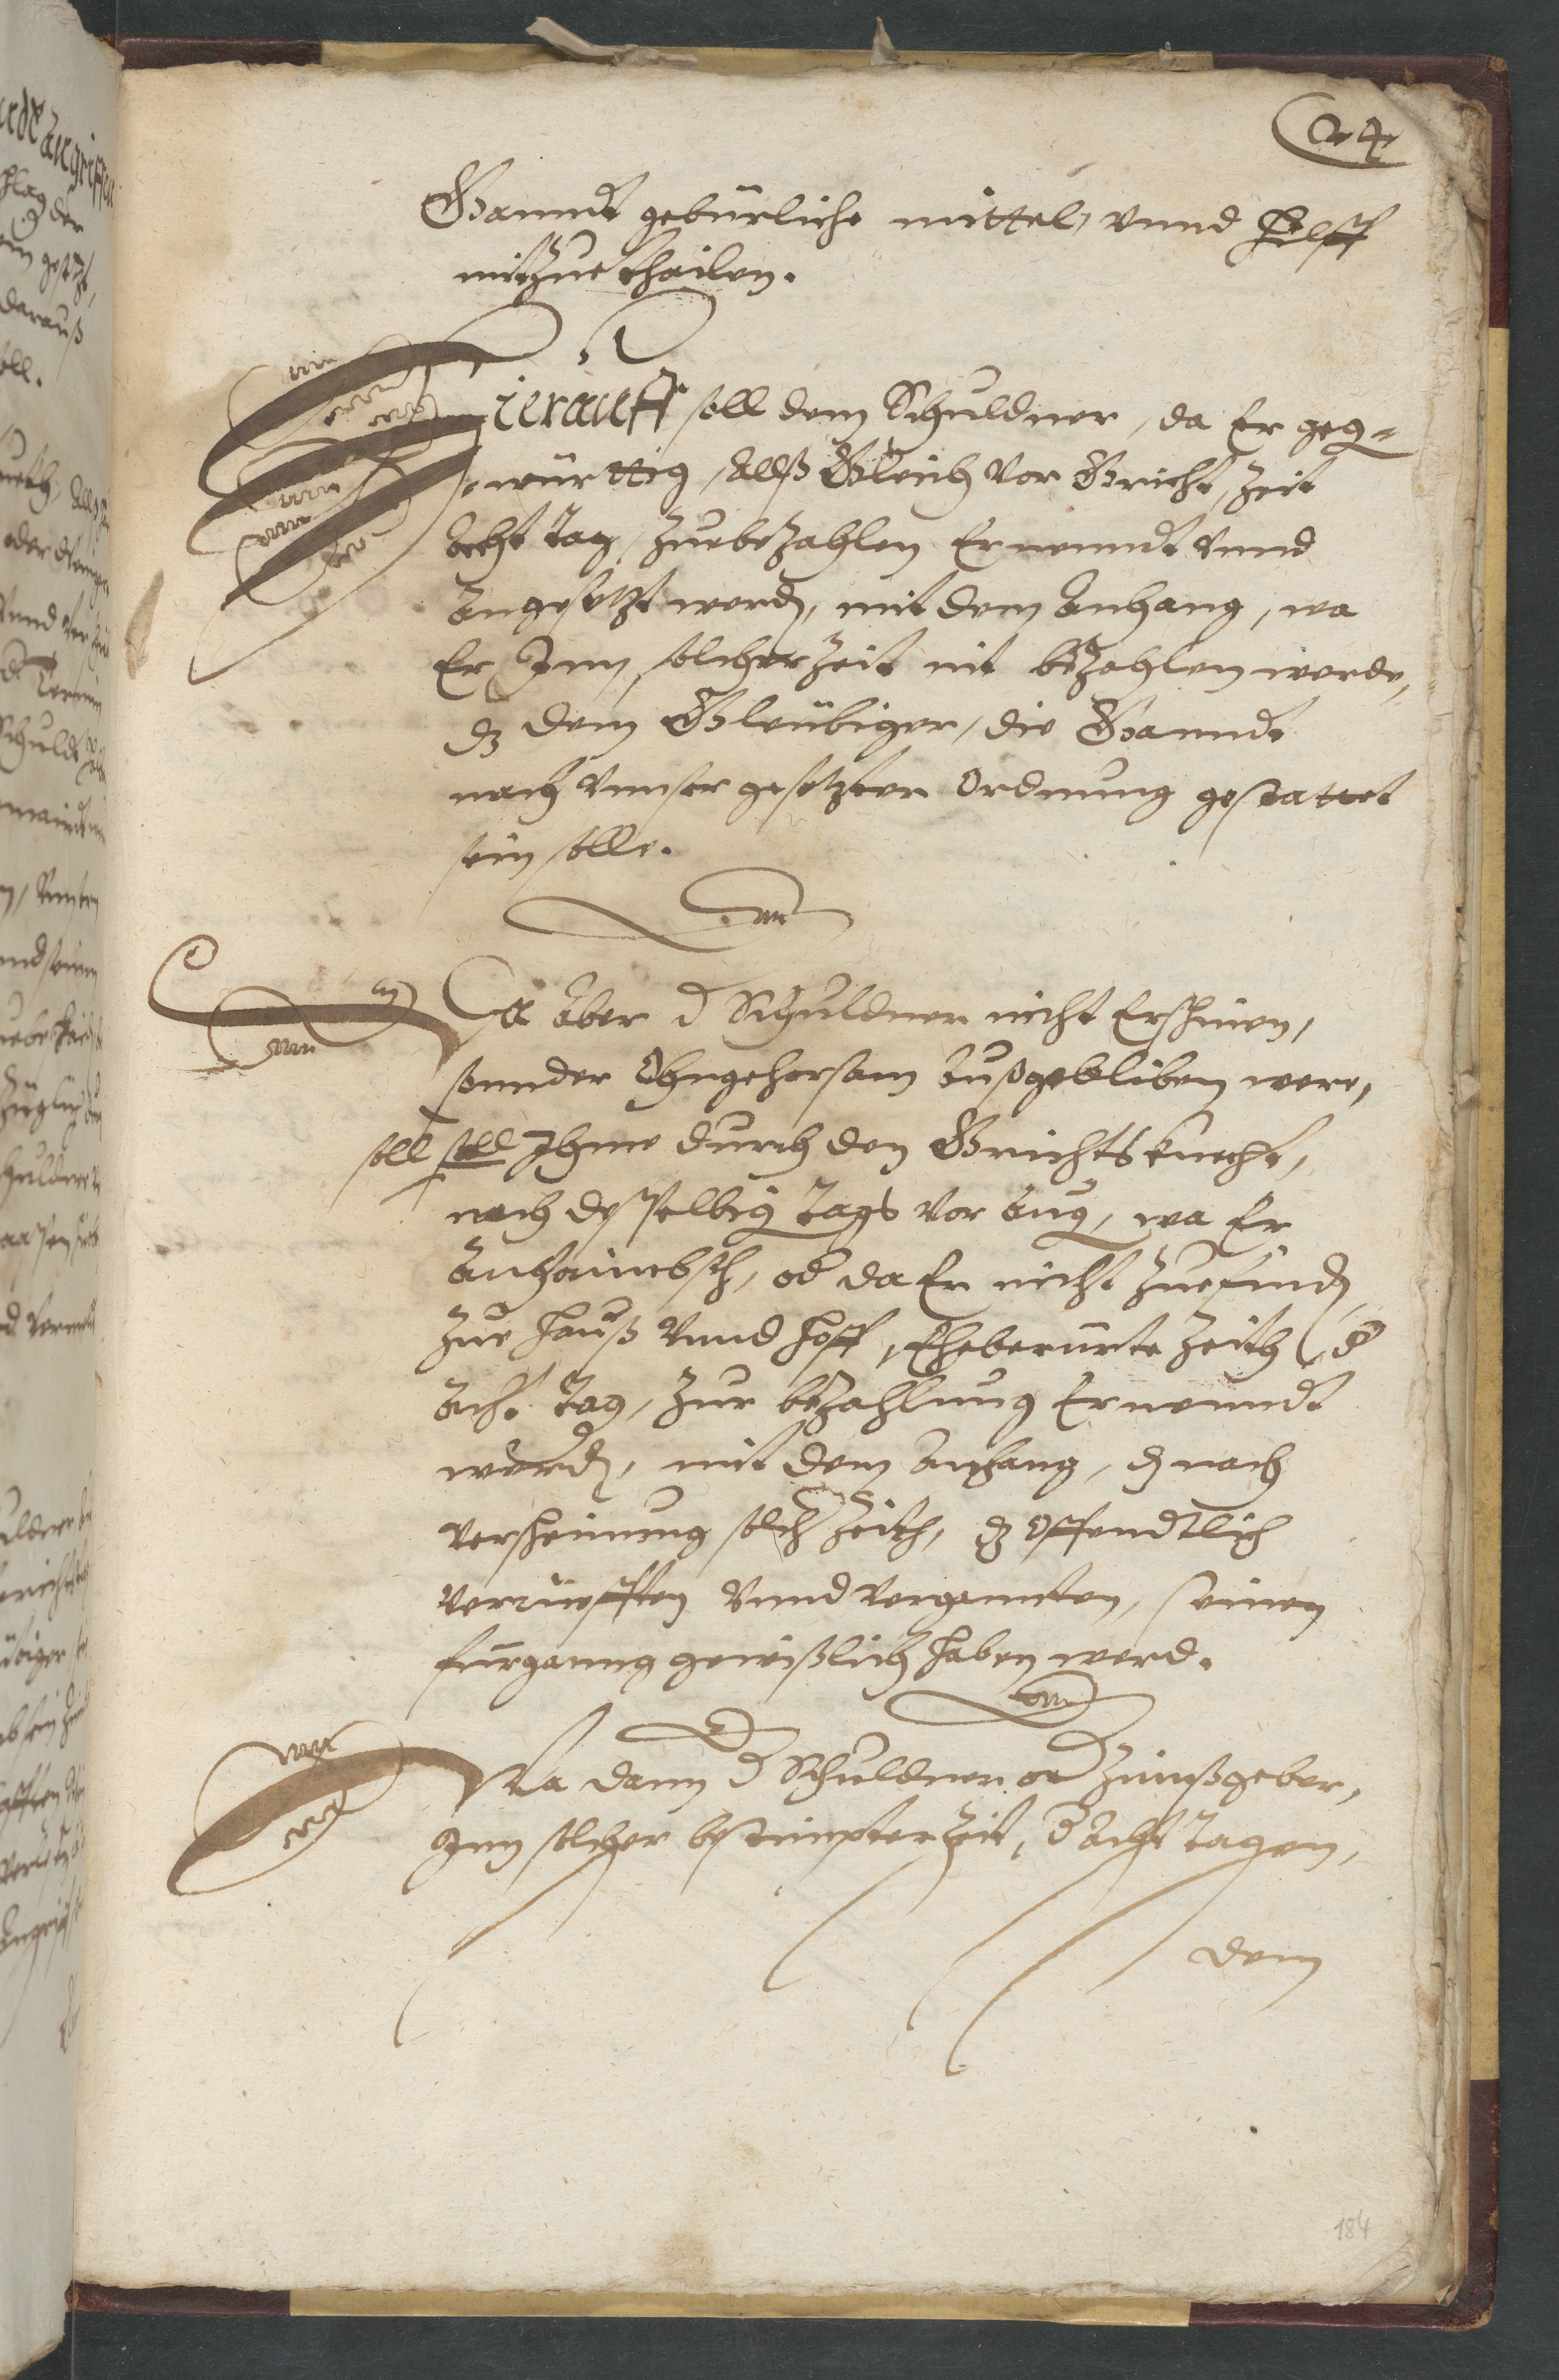 24
Ganndt gebürliche mittel, vnnd Hilff
mitzue thailen.
Hierauff soll dem Schuldner, da Er geg=
württig, Allß Gleich vor Gericht, Zeit
Acht Tag, zuebezahlen Ernenndt vnnd
Angesetzt werd, mit dem Anhang, wa
Er Jnn solcher Zeit nit bezahlen werde,
dz dem Gleubiger, die Ganndt
nach vnnser gesetzten Ordnung gestattet
sein solle.
Wa Aber d Schuldner nicht Erschinen,
sonnder Vngehorsam Außgebliben were,
soll soll Jhme durch den Grichtsknecht,
noch desselbig Tags vor Aug, wa Er
Anhaimbsch, od da Er nicht zuefinden
zue Hauß vnnd Hoff, Eheberürte Zeith d
Acht Tag, zur bezahlung Ernenndt
werd, mit dem Anhang, dz nach
verscheinung solch Zeith, dz offendtlich
verrueffen vnnd verganten, seinen
fürganng gewißlich haben werd.
Wa dann d Schuldner od Zinnßgeber,
Jnn solcher bestimpter Zeit, d Acht Tagen,
dem
184